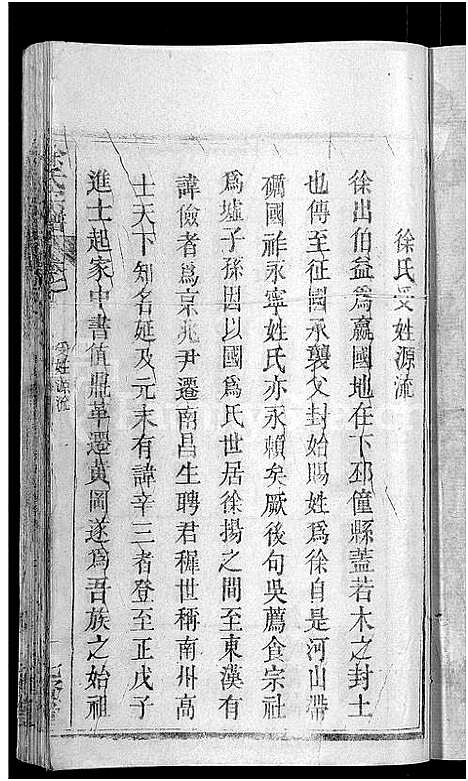 徐氏受姓源流
徐出伯益爲嬴國地在下邳僮縣蓋若木之封土
也傳至征國承襲父封始賜姓爲徐自是河山帶
礪國祚永寧姓氏亦永賴矣厥後句吳薦食宗社
爲墟子孫因以國爲氏世居徐揚之間至東漢有
諱儉者爲京兆尹遷南昌生聘君穉世稱南州高
士天下知名延及元末有諱辛三者登至正戊子
進士起家中書值鼎革遷黃岡遂爲吾族之始祖
徐氏宗譜
受姓源流